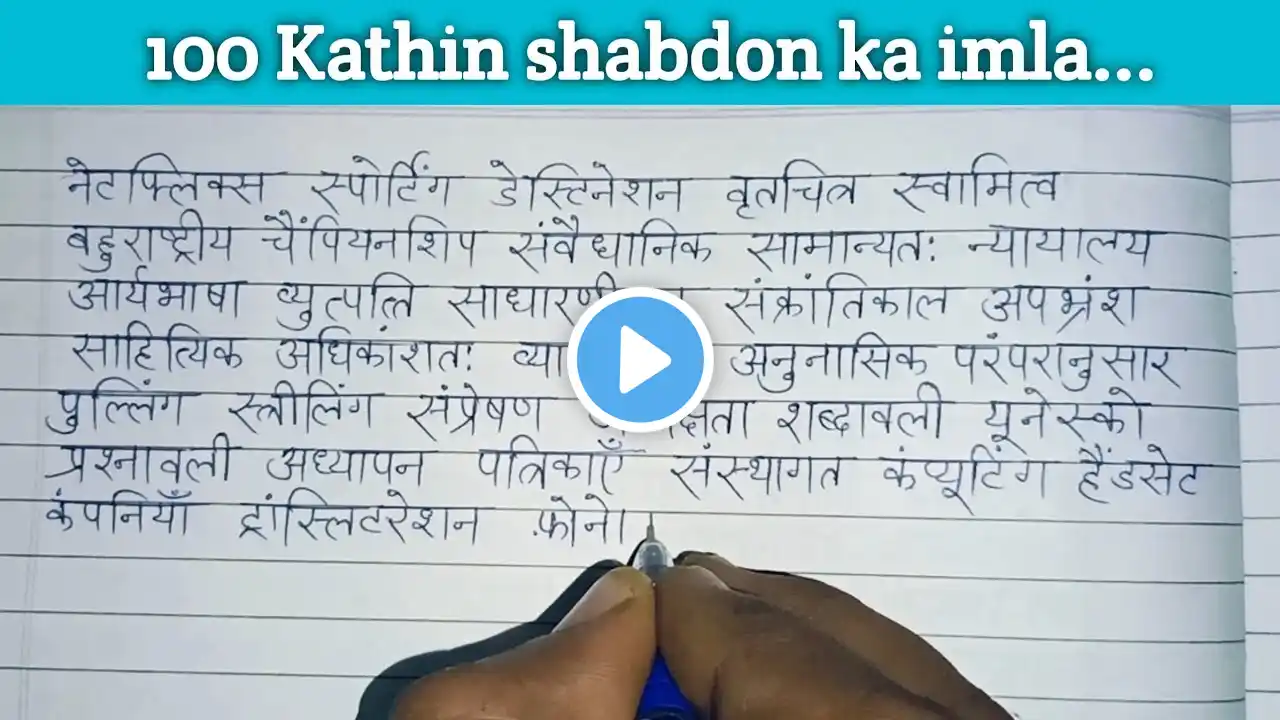 100 Kathin shabdon ka imla...
नेटफ्लिक्स स्पोर्टिंग डेस्टिनेशन वृतचित्र स्वामित्व
बहुराष्ट्रीय चैंपियनशिप संवैधानिक सामान्यतः न्यायालय
आर्यभाषा व्युत्पत्ति संक्रांतिकाल अपभ्रंश
साहित्यिक अधिकांशतः अनुनासिक परंपरानुसार
पुल्लिंग स्त्रीलिंग संप्रेषण शब्दावली यूनेस्को
प्रश्नावली अध्यापन पत्रिकाएँ संस्थागत कंप्यूटिंग हैंडसेट
कंपनियाँ ट्रांस्लिटरेशन फ़ोने